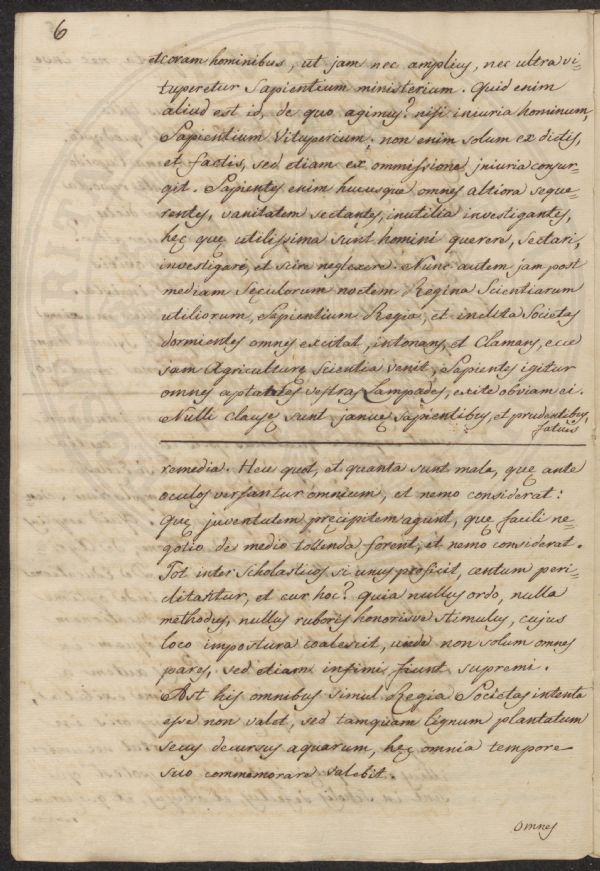 6
et coram hominibus, ut jam nec amplius, nec ultra vi=
tuperetur Sapientium ministerium. Quid enim
aliud est id, de quo agimus? nisi iniuria hominum,
Sapientium Vituperium; non enim solum ex dictis,
et factis, sed etiam ex ommissione jniuria consur=
git. Sapientes enim hucusque omnes altiora seque=
rentes, vanitatem sectantes, inutilia investigantes,
hęc quę utilissima sunt homini querere, sectari,
investigare, et scire neglexere. Nunc autem jam post
mediam sęculorum noctem Regina Scientiarum
utiliorum, Sapientium Regia, et inclita Societas
dormientes omnes excitat, intonans, et Clamans, ecce
jam Agriculturę Scientia venit, Sapientes igitur
omnes aptate vestras Lampades, exite obviam ei.
Nulli clausę sunt januę sapientibus, et prudentibus,
fatuis
remedia. Heu quot, et quanta sunt mala, quę ante
oculos versantur omnium, et nemo considerat:
Quę juventutem pręcipitem agunt, que facili ne=
gotio de medio tollenda forent, et nemo considerat.
Tot inter Scholasticos si unus proficit, centum peri=
clitantur, et cur hoc? quia nullus ordo, nulla
methodus, nullus ruboris honorisve stimulus, cujus
loco impostura coalescit, unde non solum omnes
pares, sed etiam infimi fiunt supremi.
Ast his omnibus simul Regia Societas intenta
esse non valet, sed tamquam lignum plantatum
secus decursus aquarum, hęc omnia tempore
suo commemorare valebit.
omnes